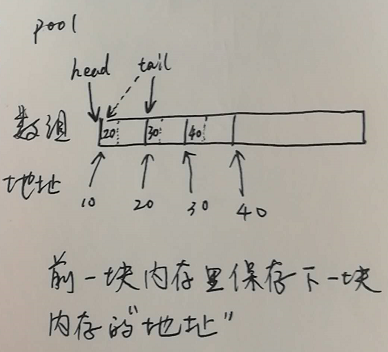 pool
head tail
数组 20 30 40
地址 10 20 30 40
前一块内存里保存下一块
内存的"地址"